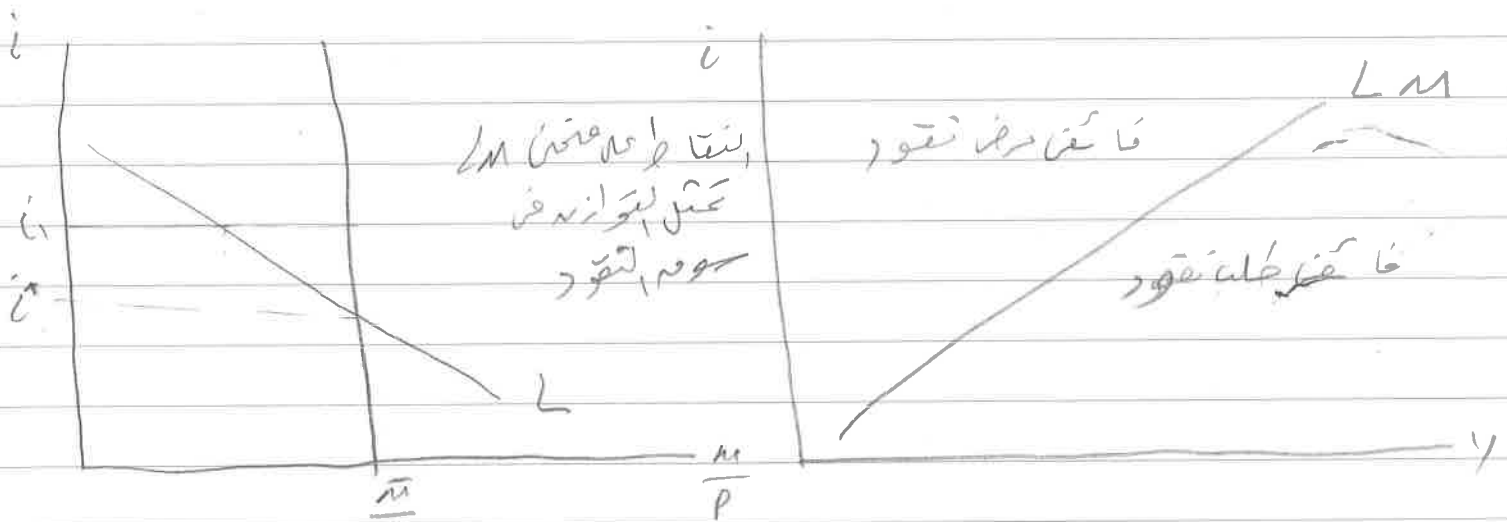 i
i₁
i*
L
M̄
M/P
النقاط على منحنى LM
تمثل التوازن في
سوق النقود
i
LM
فائض عرض نقود
فائض طلب نقود
y